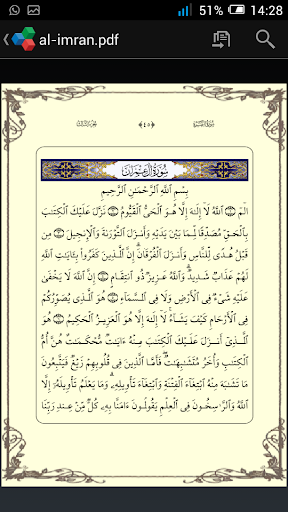 51% 14:28
al-imran.pdf
﴿٤٥﴾
سُورَةُ آلِ عِمْرَانَ
بِسْمِ اللَّهِ الرَّحْمَٰنِ الرَّحِيمِ
الٓمٓ ۝ اللَّهُ لَا إِلَٰهَ إِلَّا هُوَ الْحَيُّ الْقَيُّومُ ۝ نَزَّلَ عَلَيْكَ الْكِتَٰبَ
بِالْحَقِّ مُصَدِّقًا لِّمَا بَيْنَ يَدَيْهِ وَأَنزَلَ التَّوْرَىٰةَ وَالْإِنجِيلَ ۝ مِن
قَبْلُ هُدًى لِّلنَّاسِ وَأَنزَلَ الْفُرْقَانَ ۗ إِنَّ الَّذِينَ كَفَرُوا۟ بِـَٔايَٰتِ اللَّهِ
لَهُمْ عَذَابٌ شَدِيدٌ ۗ وَاللَّهُ عَزِيزٌ ذُو انتِقَامٍ ۝ إِنَّ اللَّهَ لَا يَخْفَىٰ
عَلَيْهِ شَىْءٌ فِى الْأَرْضِ وَلَا فِى السَّمَآءِ ۝ هُوَ الَّذِى يُصَوِّرُكُمْ
فِى الْأَرْحَامِ كَيْفَ يَشَآءُ ۚ لَآ إِلَٰهَ إِلَّا هُوَ الْعَزِيزُ الْحَكِيمُ ۝ هُوَ
الَّذِىٓ أَنزَلَ عَلَيْكَ الْكِتَٰبَ مِنْهُ ءَايَٰتٌ مُّحْكَمَٰتٌ هُنَّ أُمُّ
الْكِتَٰبِ وَأُخَرُ مُتَشَٰبِهَٰتٌ ۖ فَأَمَّا الَّذِينَ فِى قُلُوبِهِمْ زَيْغٌ فَيَتَّبِعُونَ
مَا تَشَٰبَهَ مِنْهُ ابْتِغَآءَ الْفِتْنَةِ وَابْتِغَآءَ تَأْوِيلِهِۦ ۗ وَمَا يَعْلَمُ تَأْوِيلَهُۥٓ إِلَّا
اللَّهُ ۗ وَالرَّٰسِخُونَ فِى الْعِلْمِ يَقُولُونَ ءَامَنَّا بِهِۦ كُلٌّ مِّنْ عِندِ رَبِّنَا